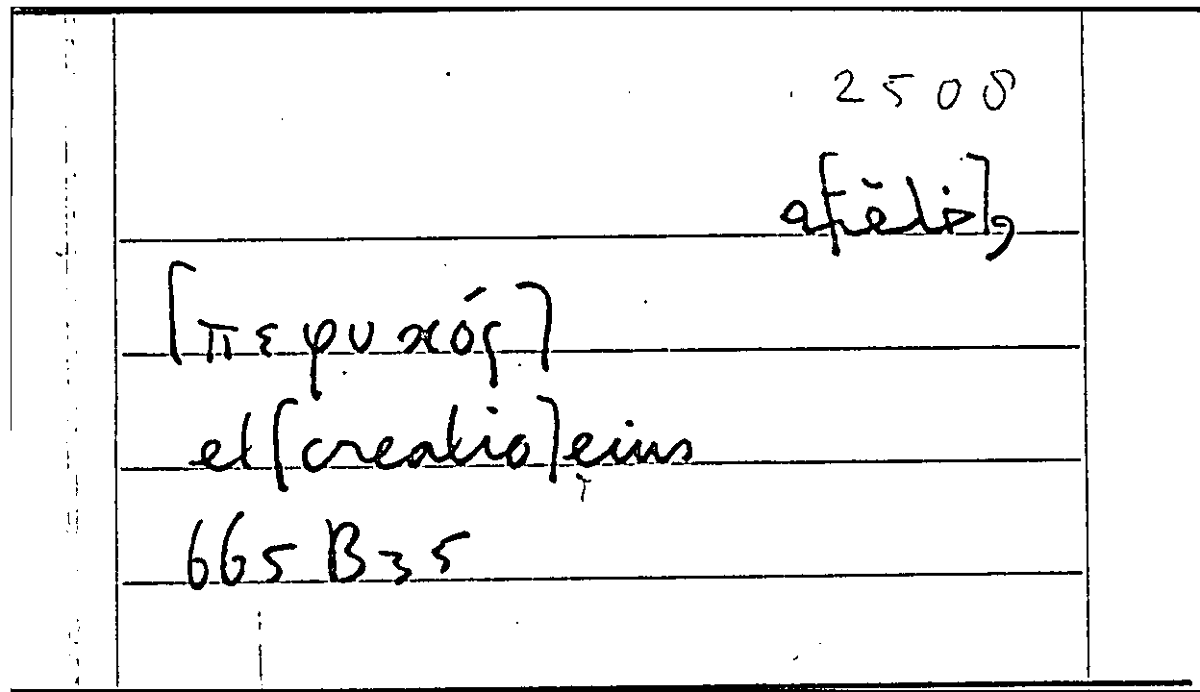 2508
[πεφυκός]
et [creatio] eius
665 B 35